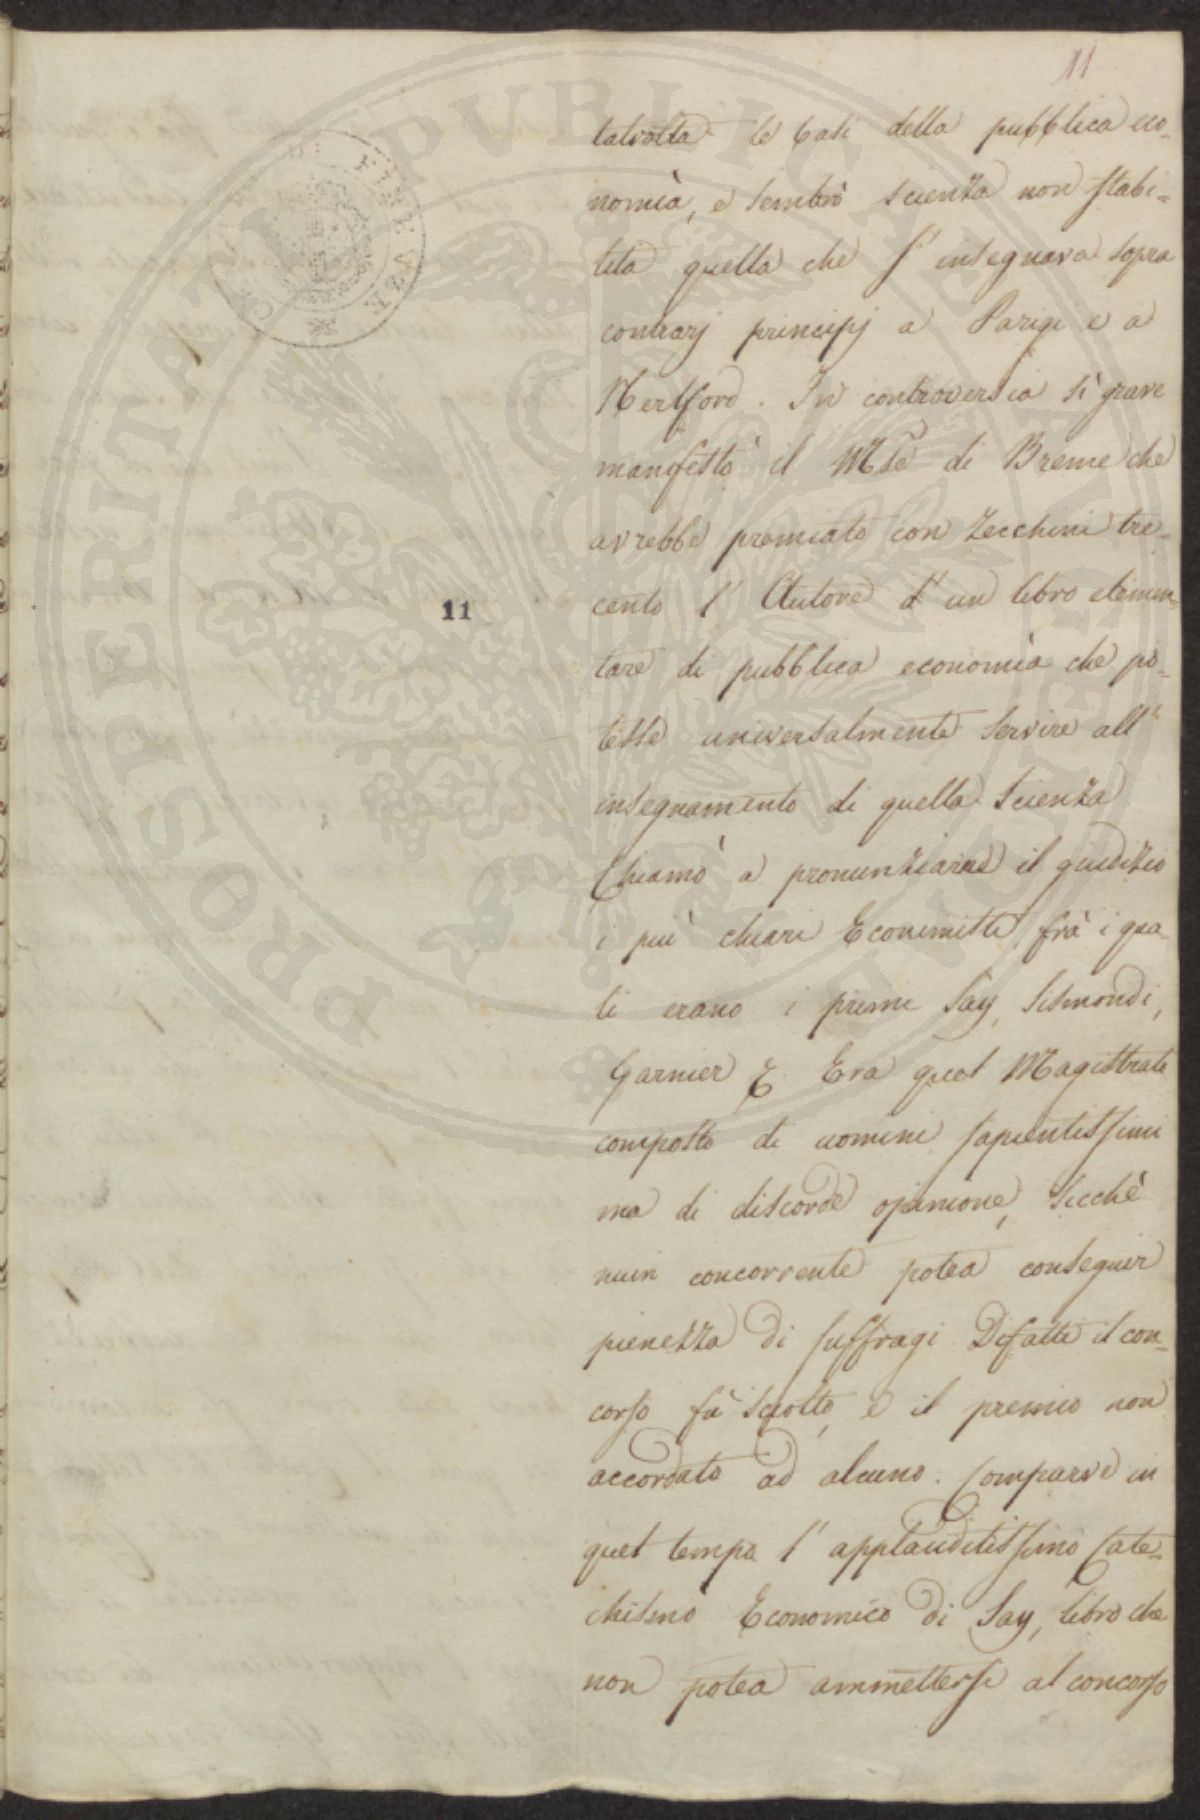 11
talvolta le basi della pubblica eco-
nomìa, e sembrò scienza non stabi-
lita quella che s' insegnava sopra
contrarj principj a Parigi e a
Hertford. In controversia sì grave
manifestò il Mse di Breme che
avrebbe premiato con zecchini tre-
cento l' Autore d' un libro elemen-
tare di pubblica economìa che po-
tesse universalmente servire all'
insegnamento di quella scienza
Chiamò a pronunziare il giudizio
i più chiari Economisti, frà i qua-
li erano i primi Say, Sismondi,
Garnier &. Era quel Magistrato
composto di uomini sapientissimi
ma di discorde opinione, sicchè
niun concorrente potea conseguir
pienezza di suffragi Difatti il con-
corso fù sciolto, e il premio non
accordato ad alcuno. Comparve in
quel tempo l' applauditissimo Cate-
chismo Economico di Say, libro che
non potea ammettersi al concorso
11
PROSPERITATI PVBLICAE